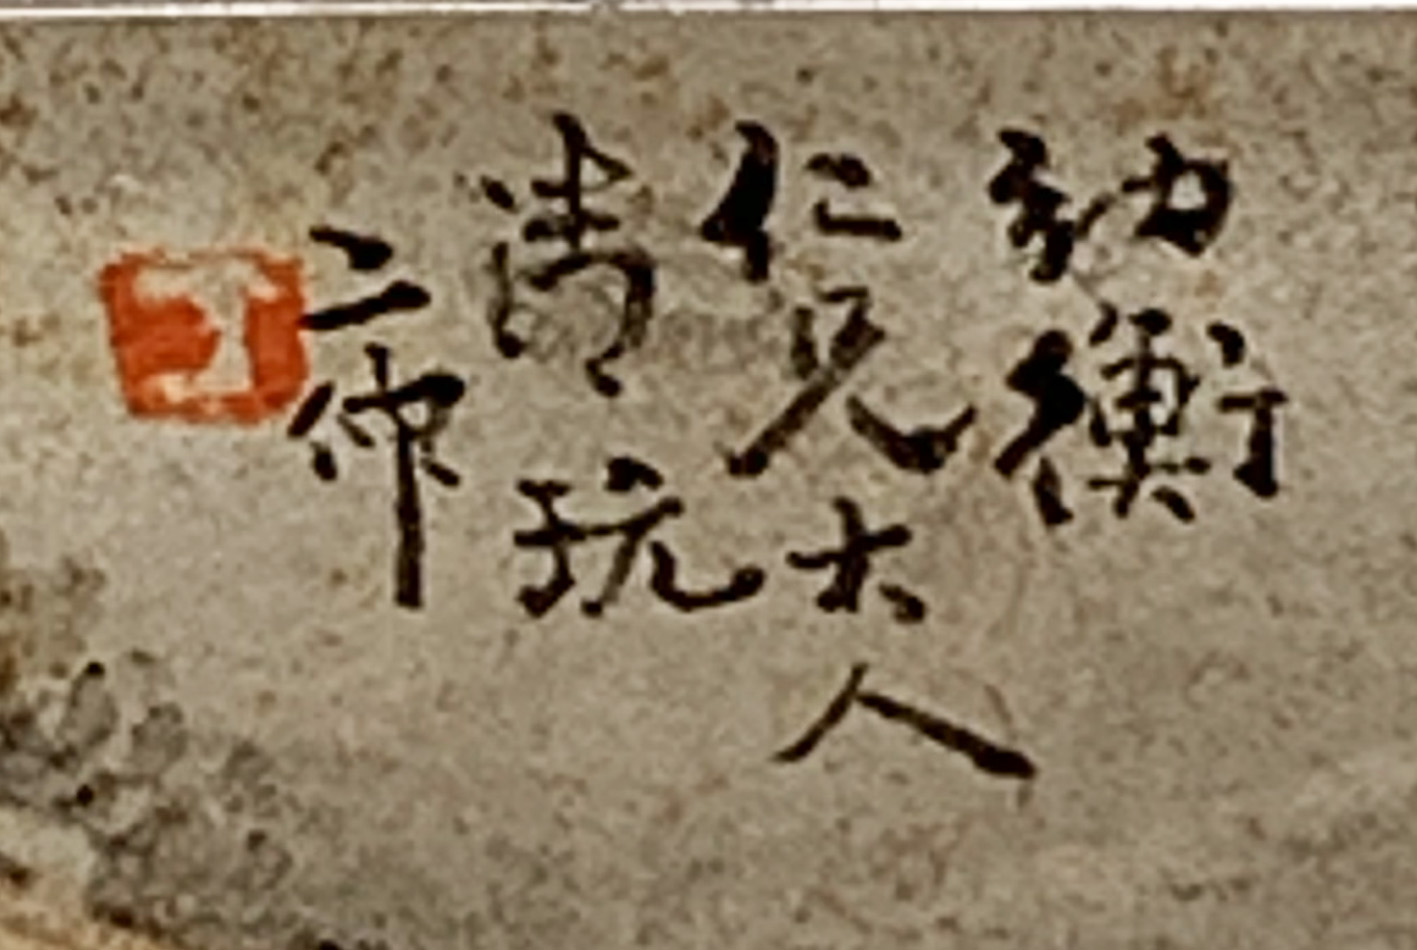 幼衡
仁兄大人
清玩
二仲